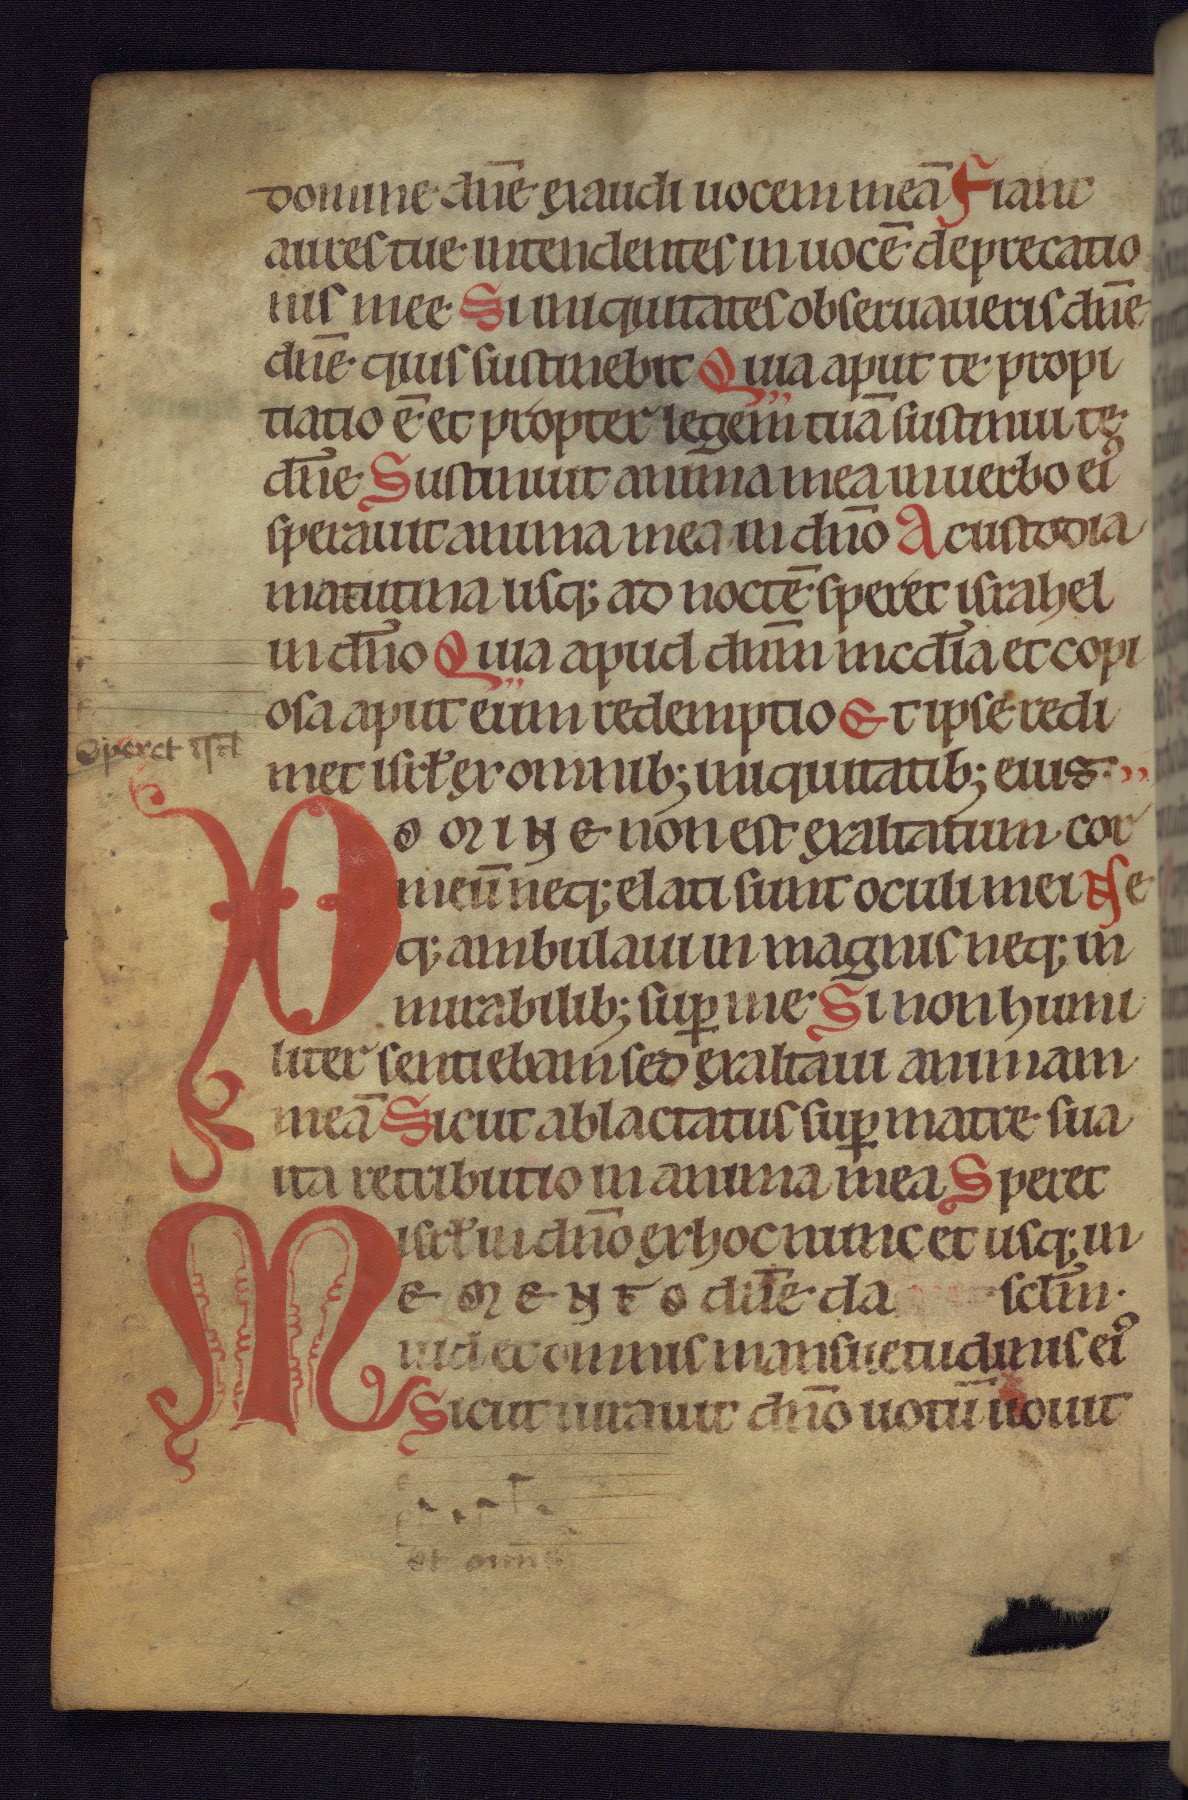 domine dn̄e exaudi uocem meā Fiant
aures tue intendentes in uocē deprecatio
nis mee Si iniquitates obseruaueris dn̄e
dn̄e quis sustinebit Quia aput te propi
tiatio ē et propter legem tuā sustinui te
dn̄e Sustinuit anima mea in uerbo ei᾽
sperauit anima mea in dn̄o A custodia
matutina usq; ad noctē speret israhel
in dn̄o Quia apud dn̄m mc̄dia et copi
osa aput eum redemptio Et ipse redi
Speret isrl
met isrl̄ ex omnib; iniquitatib; eius
DOMINE non est exaltatum cor
meū neq; elati sunt oculi mei Ne
q; ambulaui in magnis neq; in
mirabilib; sup̄ me Si non humi
liter sentiebam sed exaltaui animam
meā Sicut ablactatus sup̄ matre sua
ita retributio in anima mea Speret
isrl̄ in dn̄o ex hoc nunc et usq; in
MEMENTO dn̄e da sclm̄
uid et omnis mansuetudinis ei᾽
Sicut iurauit dn̄o uotū uouit
et omnis